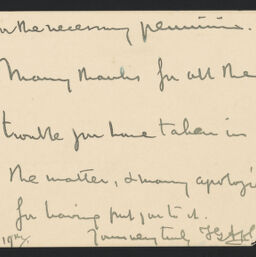 the necessary permission.
Many thanks for all the
trouble you have taken in
the matter, & many apologi
for having put you to it.
Yours very truly